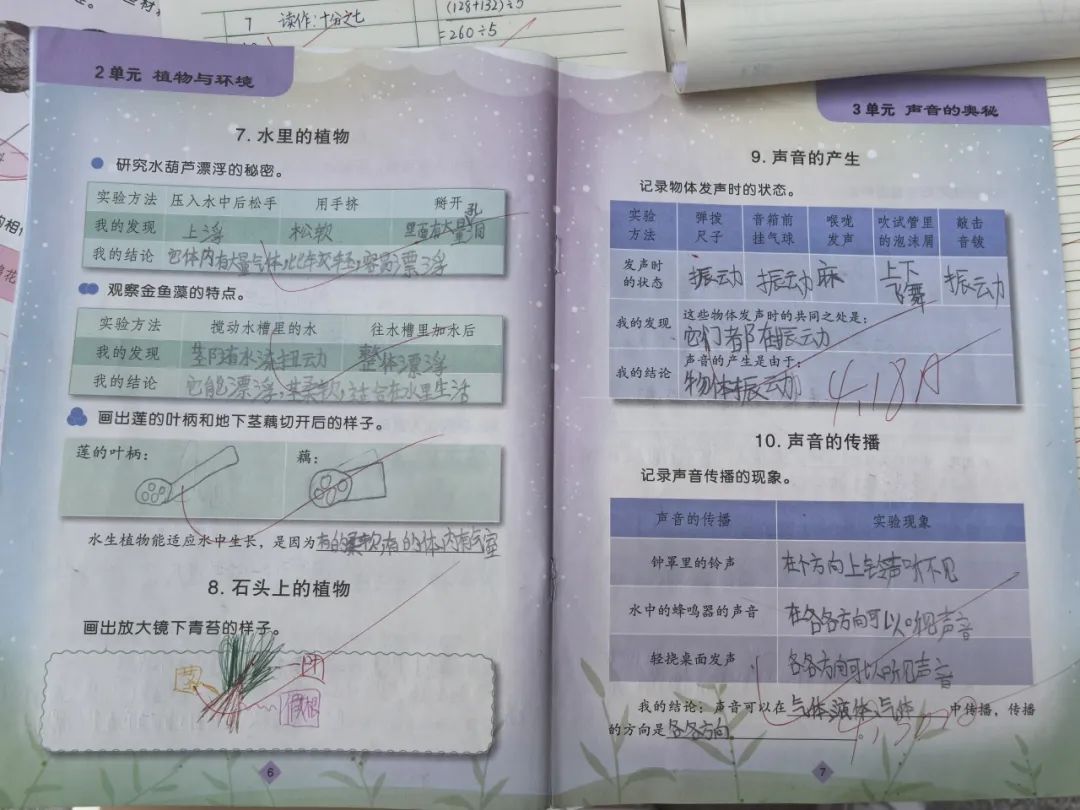 7 读作:十分之七
(128+132)÷5
=260÷5
2单元 植物与环境
7. 水里的植物
研究水葫芦漂浮的秘密。
实验方法 压入水中后松手 用手挤 掰开
我的发现 上浮 松软 里面有大量孔
我的结论 它体内有大量气体,比较轻,容易漂浮
观察金鱼藻的特点。
实验方法 搅动水槽里的水 往水槽里加水后
我的发现 茎随着水流扭动 整体漂浮
我的结论 它能漂浮,茎柔软,适合在水里生活
画出莲的叶柄和地下茎藕切开后的样子。
莲的叶柄: 藕:
水生植物能适应水中生长,是因为有的柔软有的体内有气室
8. 石头上的植物
画出放大镜下青苔的样子。
茎 叶
假根
6
3单元 声音的奥秘
9. 声音的产生
记录物体发声时的状态。
实验方法 弹拨尺子 音箱前挂气球 喉咙发声 吹试管里的泡沫屑 敲击音钹
发声时的状态 振动 振动 麻 上下飞舞 振动
我的发现 这些物体发声时的共同之处是:
它们都在振动
我的结论 声音的产生是由于:
物体振动
4.18 A
10. 声音的传播
记录声音传播的现象。
声音的传播 实验现象
钟罩里的铃声 在个方向上铃声听不见
水中的蜂鸣器的声音 在各各方向可以听见声音
轻挠桌面发声 各各方向可以听见声音
我的结论:声音可以在气体液体气体中传播,传播
的方向是各各方向。
7